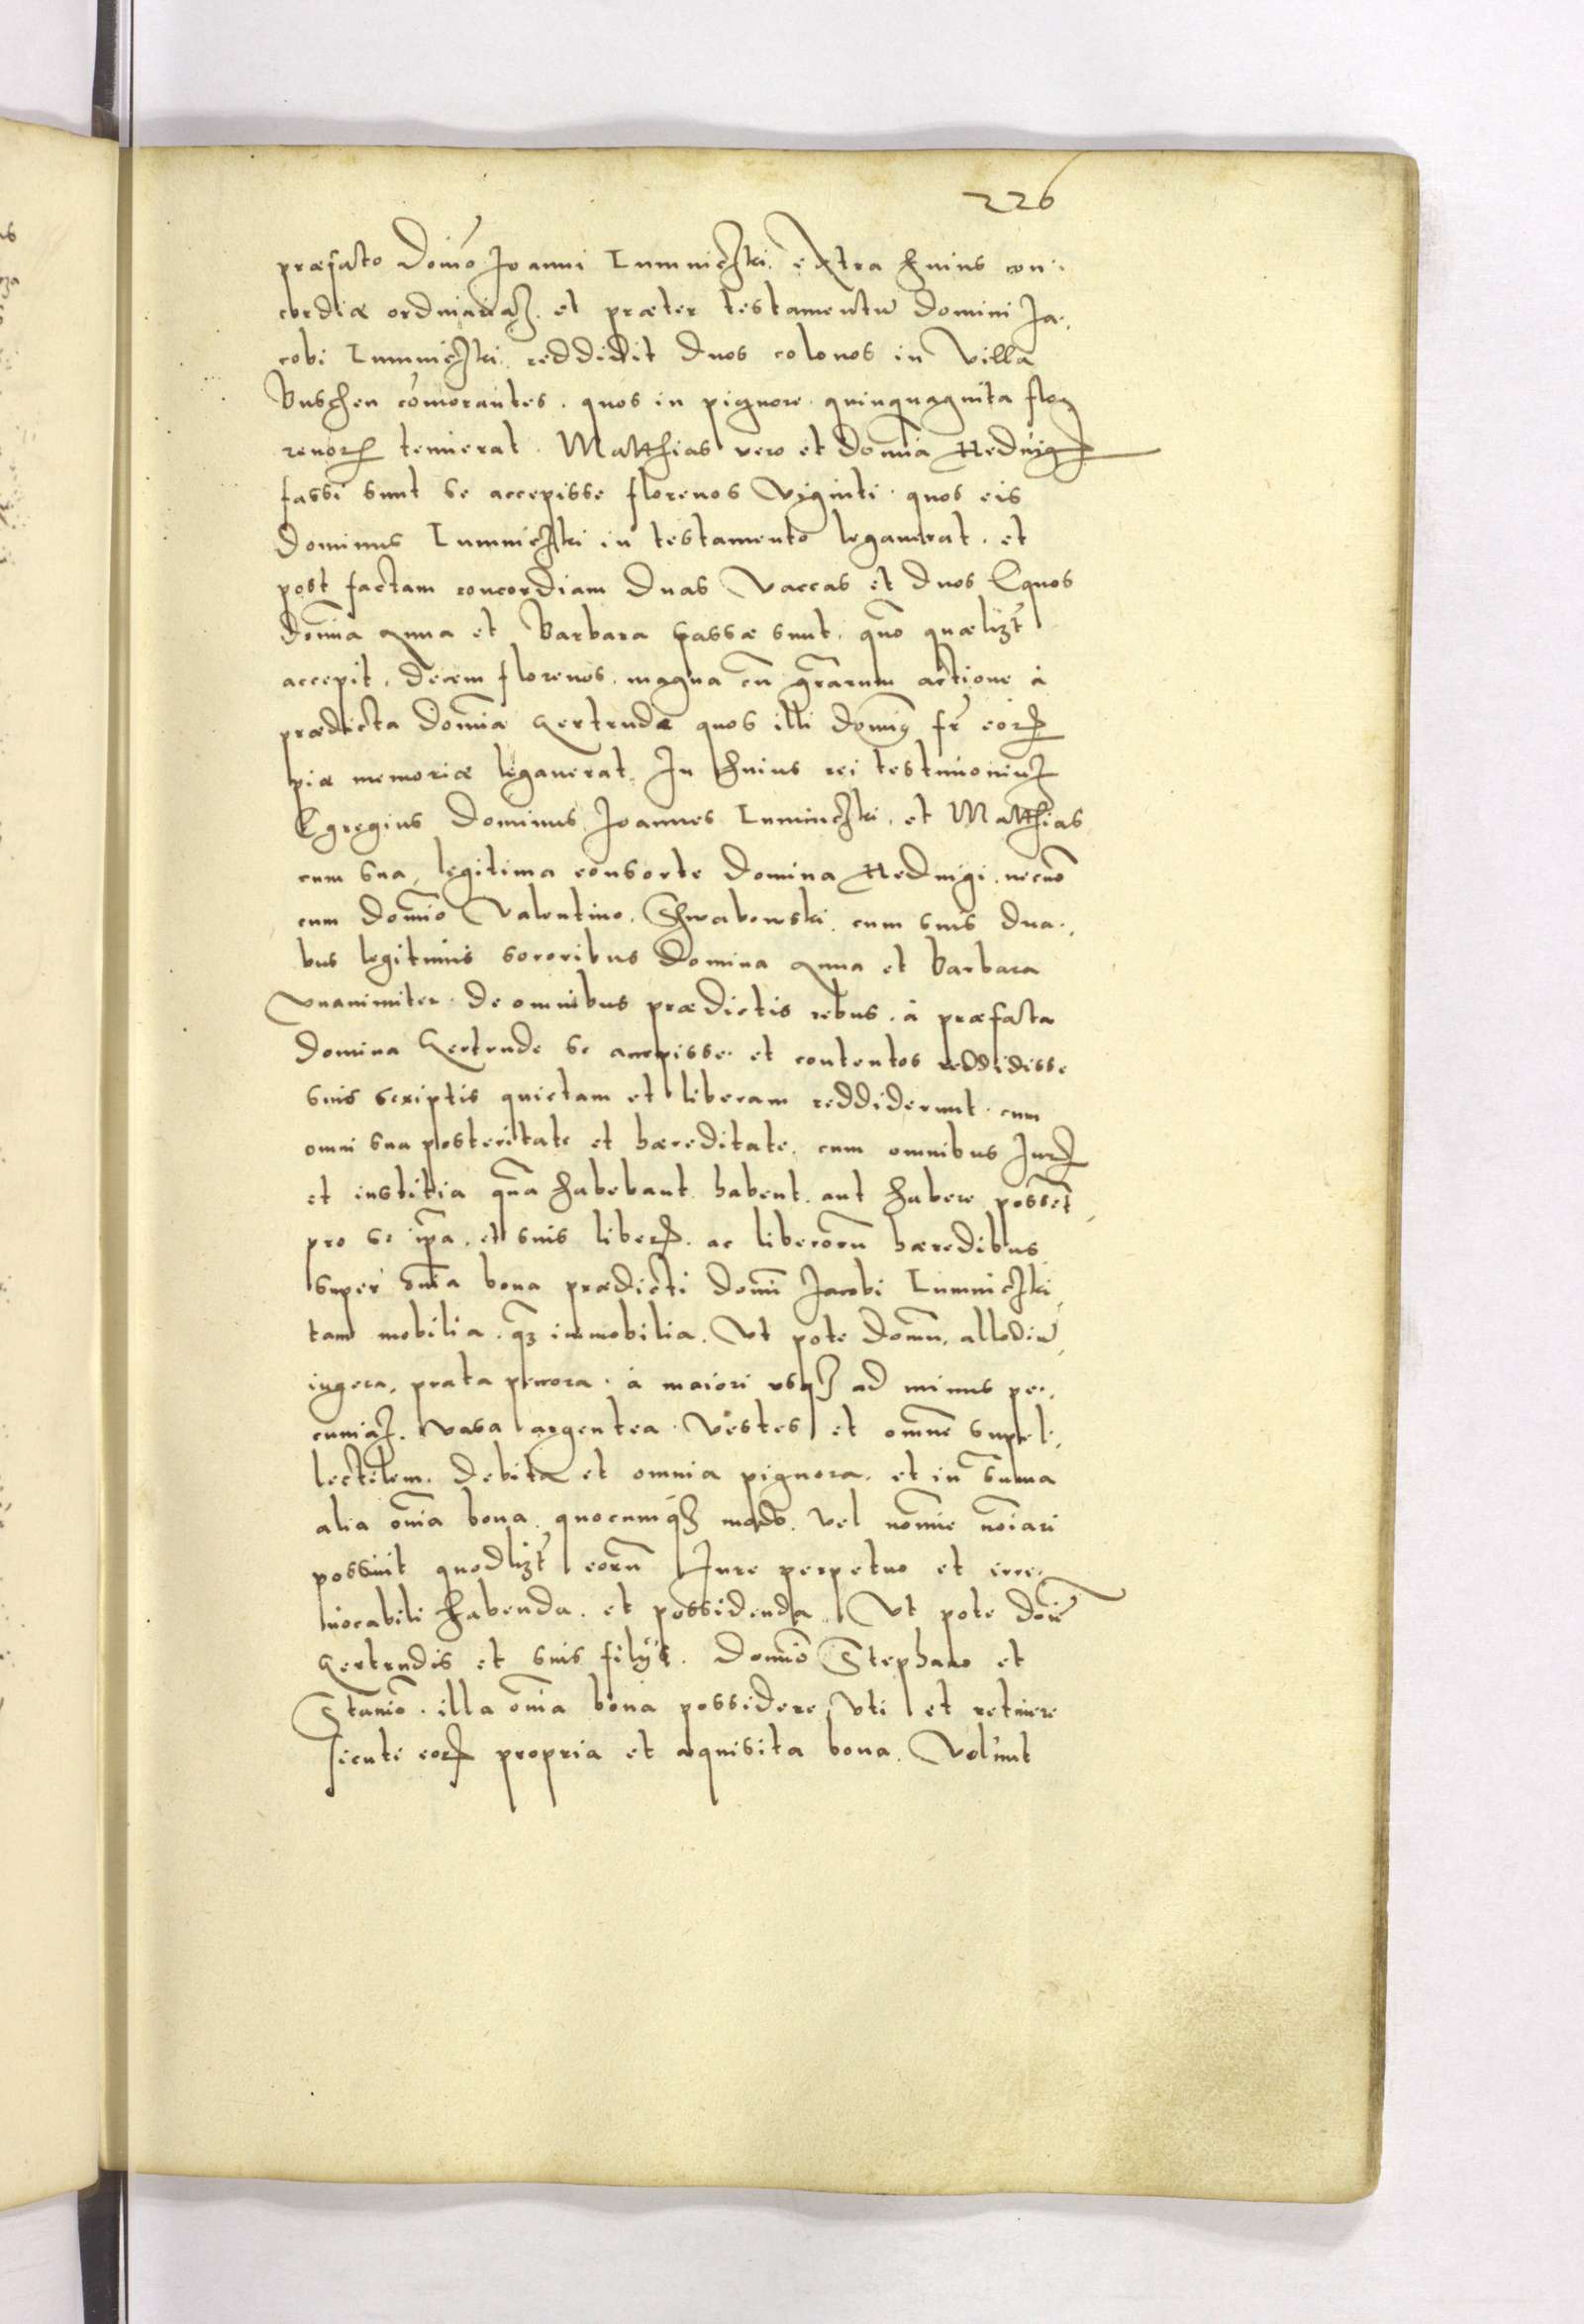 226
præfato Domō Joanni Lumniczki. extra huius con⸗
cordiæ ordinariaz. et præter testamentū Domini Ja⸗
cobi Lumniczki. reddidit duos colonos in Villa
Buschen cōmorantes. quos in pignore quinquaginta flo
renorꝝ tenuerat. Matthias vero et Domīa Hedvig
fassi sunt se accepisse florenos Viginti. quos eis
Dominus Lumniczki in testamento legauerat. et
post factam concordiam duas Vaccas et duos Equos
domīa Anna et Barbara fassæ sunt. quō quælibꝫt
accepit. Decem florenos. magna cū gr̄arum actione à
prædicta Domīa Gertrude quos illi Domīꝯ fr̄ eorꝝ
piæ memoriæ legauerat. In huius rei testimoniuꝫ
Egregius Dominus Joannes Lumniczki. et Matthias
cum sua, legitima consorte Domina Hedvigi. necnō
cum Domīo Valentino. Schwabowski. cum suis dua⸗
bus legitimis sororibus Domina Anna et Barbara
Vnanimiter. De omnibus prædictis rebus. à præfata
Domina Gertrude se accepisse. et contentos reddidisse
suis scriptis quietam et liberam reddiderunt. cum
omni sua posteritate et hæreditate. cum omnibus Jurꝫ
et iustitia quā habebant habent. aut habere possēt
pro se ip̄a. et suis liberꝫ. ac liberorū hæredibus
super om̄ia bona prædicti Domī Jacobi Lumniczki
tam mobilia. qꝫ immobilia. Vt pote Domū. allodiū
iugera, prata pecora. à maiori vsqꝫ ad minus pe⸗
cuniaꝫ. Vasa argentea. Vestes et omnē supel⸗
lectilem. Debita et omnia pignora. et in sūma
alia om̄ia bona. quocumqꝫ modo. vel nomīe nōiari
possint quodlibꝫt eorū Jure perpetuo et irre⸗
uocabili habenda. et possidenda. Vt pote Doīe
Gertrudis et suis filijs. Domīo Stephano et
Stanīo. illa om̄ia bona possidere Vti et retinere
sicuti eorꝝ propria et aquisita bona. Volunt